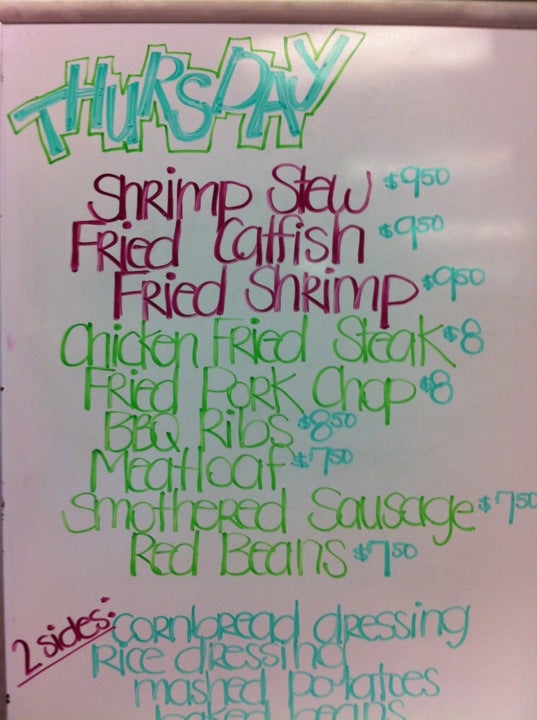 THURSDAY
Shrimp Stew $9.50
Fried Catfish $9.50
Fried Shrimp $9.50
Chicken Fried Steak $8
Fried Pork Chop $8
BBQ Ribs $8.50
Meatloaf $7.50
Smothered Sausage $7.50
Red Beans $7.50
2 sides: cornbread dressing
Rice dressing
mashed potatoes
baked beans